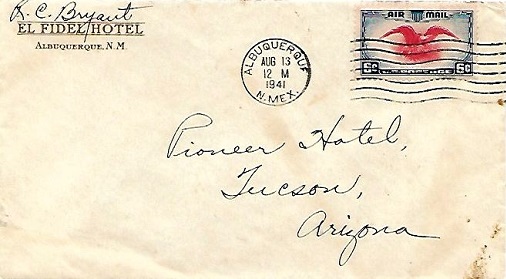 R. C. Bryant
EL FIDEL HOTEL
ALBUQUERQUE, N. M.
ALBUQUERQUE
AUG 13
12 M
1941
N. MEX.
AIR MAIL
6¢ 6¢
Pioneer Hotel,
Tucson,
Arizona